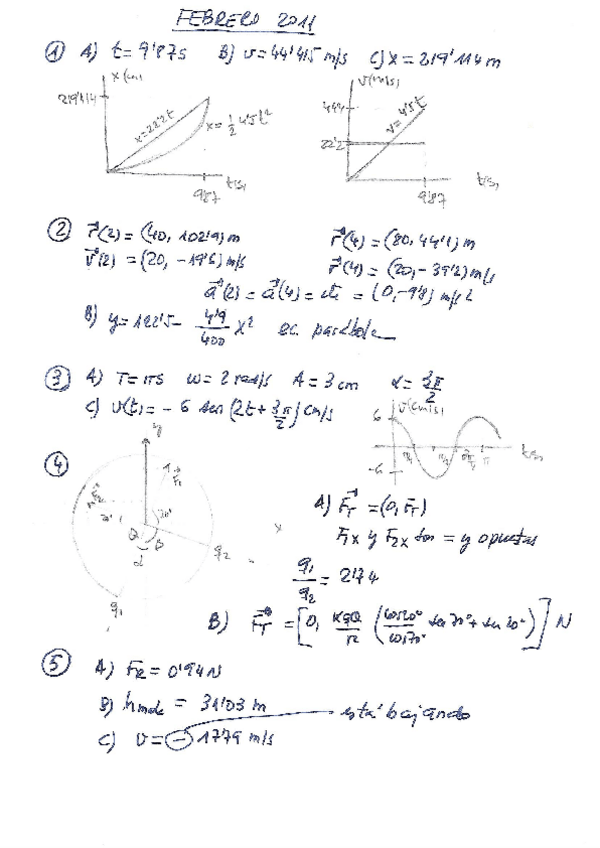 FEBRERO 2011
① A) t = 9'87 s B) v = 44'415 m/s C) x = 219'114 m
x (m) v (m/s)
219'114 x = 22'2t x = 1/2 4'5 t² 44'4 v = 4'5 t
22'2
9'87 t(s) 9'87 t(s)
② r⃗(2) = (40, 102'9) m r⃗(4) = (80, 44'1) m
v⃗(2) = (20, -19'6) m/s r⃗(4) = (20, -39'2) m/s
a⃗(2) = a⃗(4) = cte = (0, -9'8) m/s²
B) y = 122'5 - 4'9/400 x² ec. parábola
③ A) T = π s ω = 2 rad/s A = 3 cm α = 3π/2
C) v(t) = - 6 sen (2t + 3π/2) cm/s
6 v (cm/s)
-6 π/4 π/2 3π/4 π t(s)
④ y F⃗1 F⃗2 20° Q α q1 q2 x
A) F⃗T = (0, FT)
F1x y F2x son = y opuestas
q1/q2 = 2'74
B) F⃗T = [0, (cos20°/cos70° sen 70° + sen 20°)] N
⑤ A) FR = 0'94 N
B) hmax = 31'03 m
está bajando
C) v = - 17'79 m/s